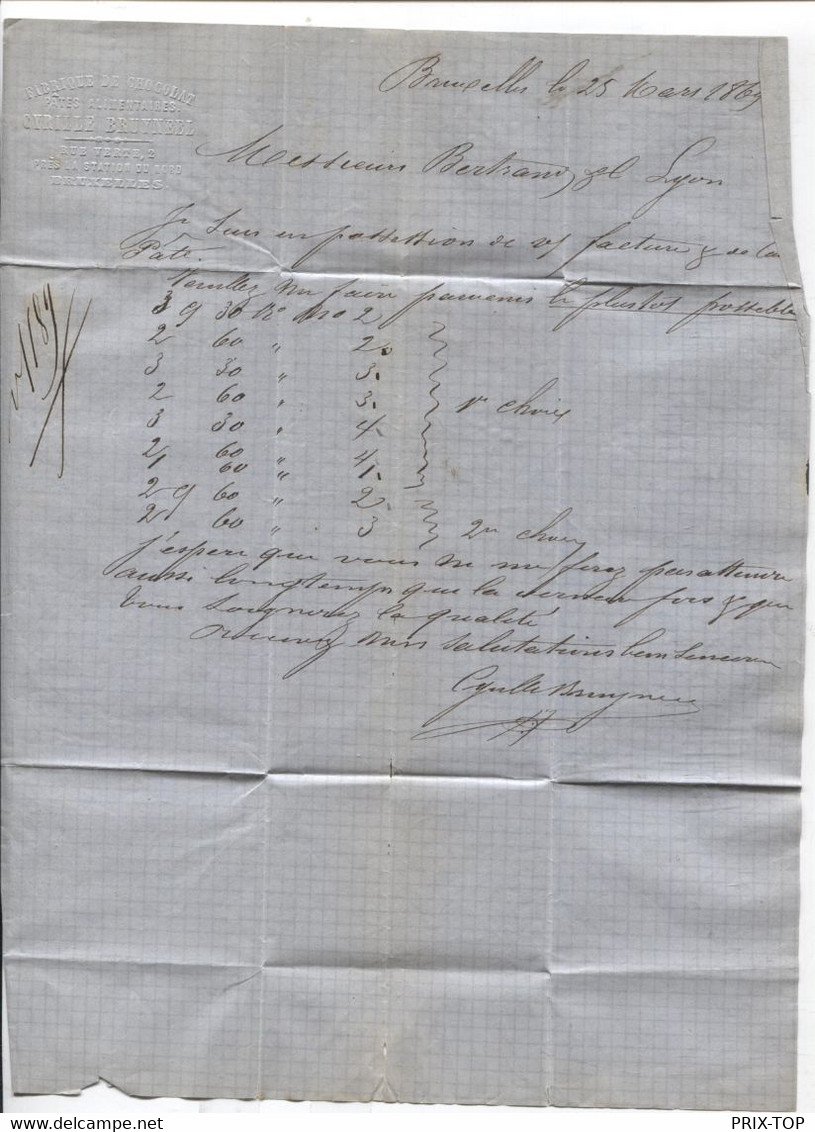 FABRIQUE DE CHOCOLAT
PATES ALIMENTAIRES
CYRILLE BRUYNEEL
RUE VERTE, 2
PRÈS LA STATION DU NORD
BRUXELLES.
Bruxelles le 25 Mars 1869
Messieurs Bertrand & C Lyon
Je suis en possession de v/ facture & de la
Pâte.
Veuillez me faire parvenir le plustot possible
3 g 30 Ko No 2
2 60 " 2
3 30 " 3
2 60 " 3
3 30 " 4
2 60 " 4
60 "
1r choix
2 g 60 " 2
2 60 " 3
2m choix
J'espere que vous ne me ferez pas attendre
aussi longtemps que la derniere fois & que
vous soignerez la qualité
Recevez mes salutations bien sinceres
Cyrille Bruyneel
PRIX-TOP